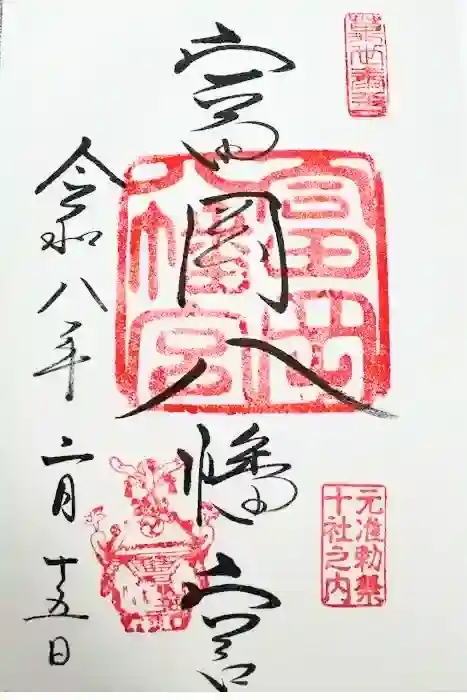 富岡八幡宮
元准勅祭
十社之内
富岡
八幡宮
令和八年二月十五日